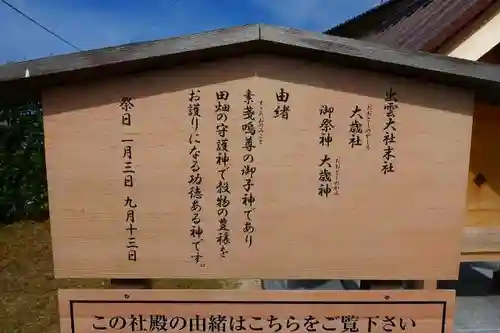 出雲大社末社
おおとしのやしろ
大歳社
おおとしのかみ
御祭神 大歳神
由緒
すさのおのみこと
素戔嗚尊の御子神であり
田畑の守護神で穀物の豊穣を
お護りになる功徳ある神です。
祭日 二月三日 九月十三日
この社殿の由緒はこちらをご覧下さい